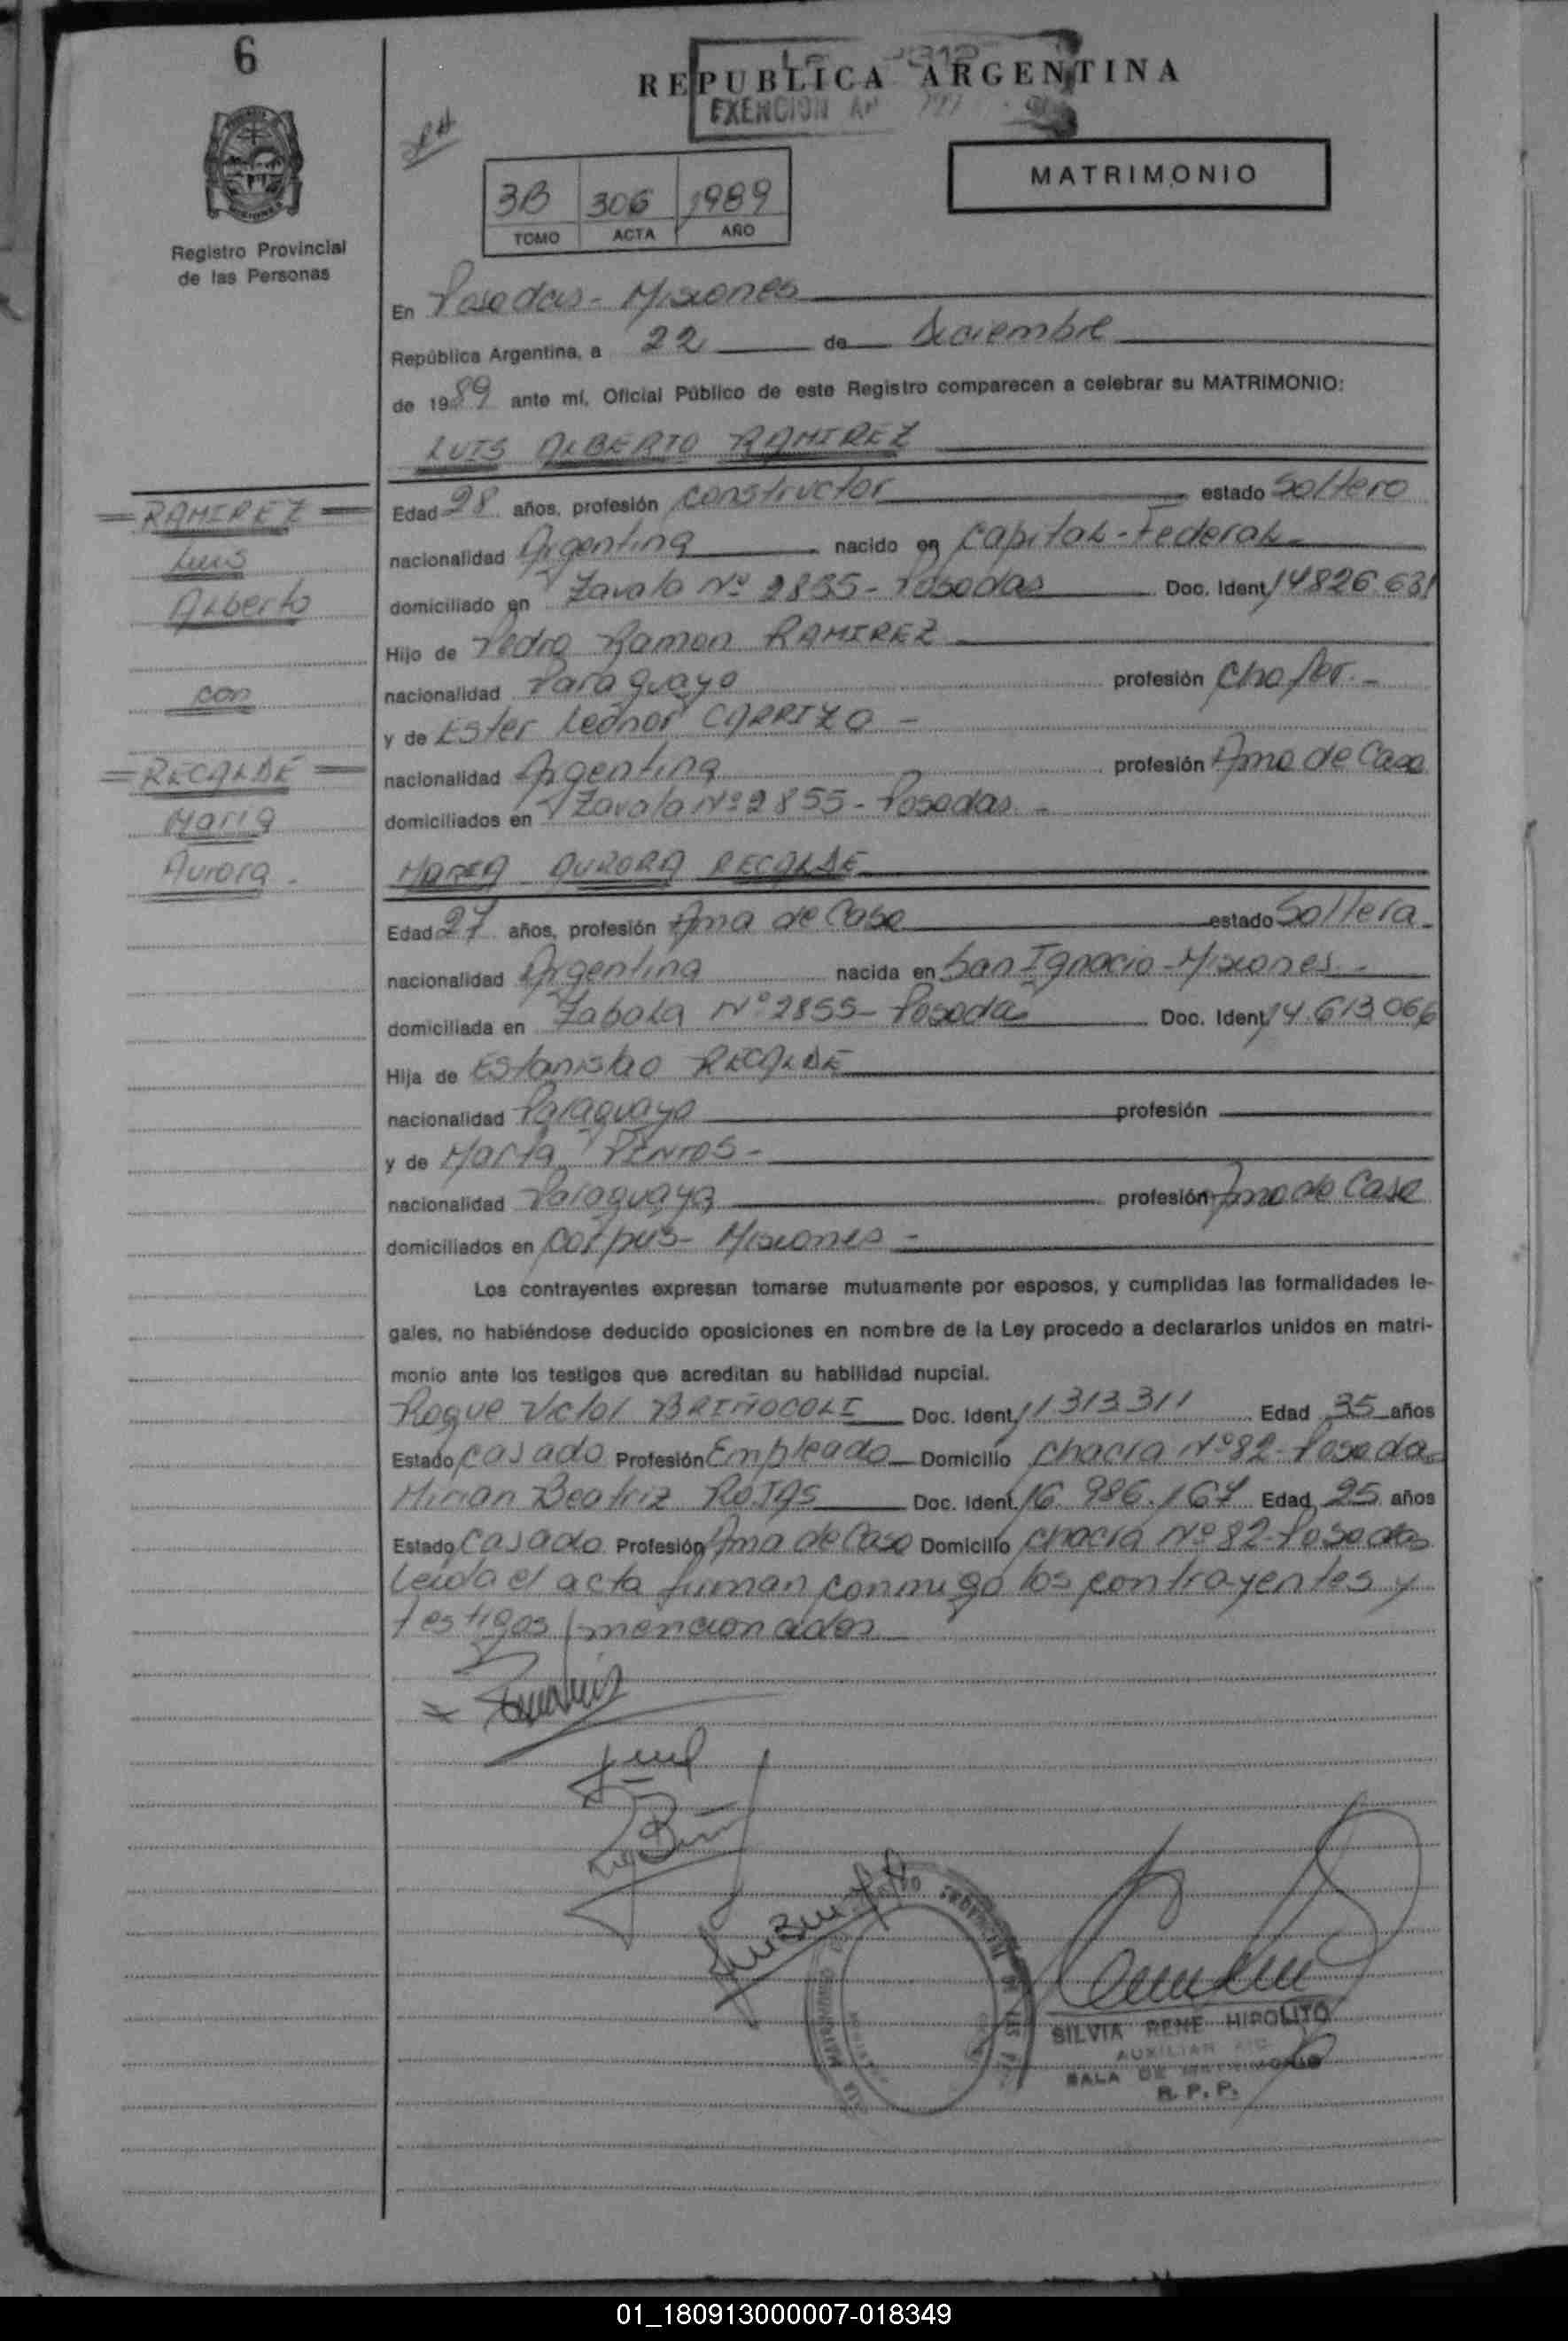 6
REPUBLICA ARGENTINA
EXENCION
MATRIMONIO
3B 306 1989
TOMO ACTA AÑO
Registro Provincial
de las Personas
En Posadas - Misiones
República Argentina, a 22 de Diciembre
de 1989 ante mí, Oficial Público de este Registro comparecen a celebrar su MATRIMONIO:
LUIS ALBERTO RAMIREZ
RAMIREZ
Luis
Alberto
con
RECALDE
Maria
Aurora.
Edad 28 años, profesión constructor estado Soltero
nacionalidad Argentina nacido en Capital-Federal
domiciliado en Zavala Nº 2855 - Posadas Doc. Ident. 14826.631
Hijo de Pedro Ramon RAMIREZ
nacionalidad Paraguayo profesión Chofer.-
y de Ester Leonor CARRIZO -
nacionalidad Argentina profesión Ama de Casa
domiciliados en Zavala Nº 2855 - Posadas -
MARIA AURORA RECALDE
Edad 27 años, profesión Ama de Casa estado Soltera
nacionalidad Argentina nacida en San Ignacio - Misiones -
domiciliada en Zabala Nº 2855 - Posadas Doc. Ident. 14.613.066
Hija de Estanislao RECALDE
nacionalidad Paraguayo profesión
y de Marta PINTOS -
nacionalidad Paraguaya profesión Ama de Casa
domiciliados en Corpus - Misiones -
Los contrayentes expresan tomarse mutuamente por esposos, y cumplidas las formalidades le-
gales, no habiéndose deducido oposiciones en nombre de la Ley procedo a declararlos unidos en matri-
monio ante los testigos que acreditan su habilidad nupcial.
Roque Victor BRIÑOCOLI Doc. Ident. 11313311 Edad 35 años
Estado Casado Profesión Empleado Domicilio Chacra Nº 82 - Posadas
Mirian Beatriz ROJAS Doc. Ident. 16.986.167 Edad 25 años
Estado Casado Profesión Ama de Casa Domicilio Chacra Nº 82 - Posadas
Leida el acta firman conmigo los contrayentes y
testigos mencionados
SILVIA RENE HIPOLITO
AUXILIAR
SALA DE MATRIMONIO
R. P. P.
01_180913000007-018349